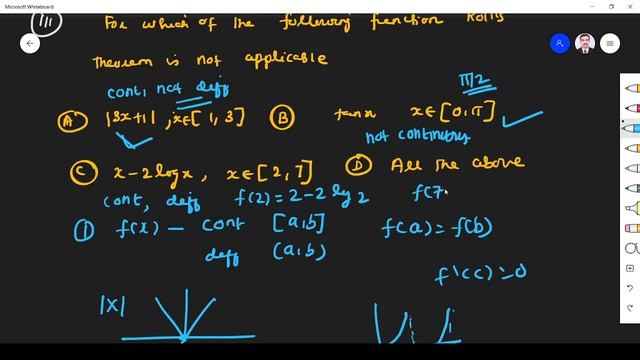 Microsoft Whiteboard
III
For which of the following function Rolls
Theorem is not applicable
cont, not diff
π/2
A |3x+1| , x∈[1,3] B tanx x∈[0,π]
not continuous
C x-2logx, x∈[2,7] D All the above
cont, deff f(2)=2-2 lg 2 f(7
① f(x) - cont [a,b] f(a)=f(b)
deff (a,b)
f'(c)=0
|x|